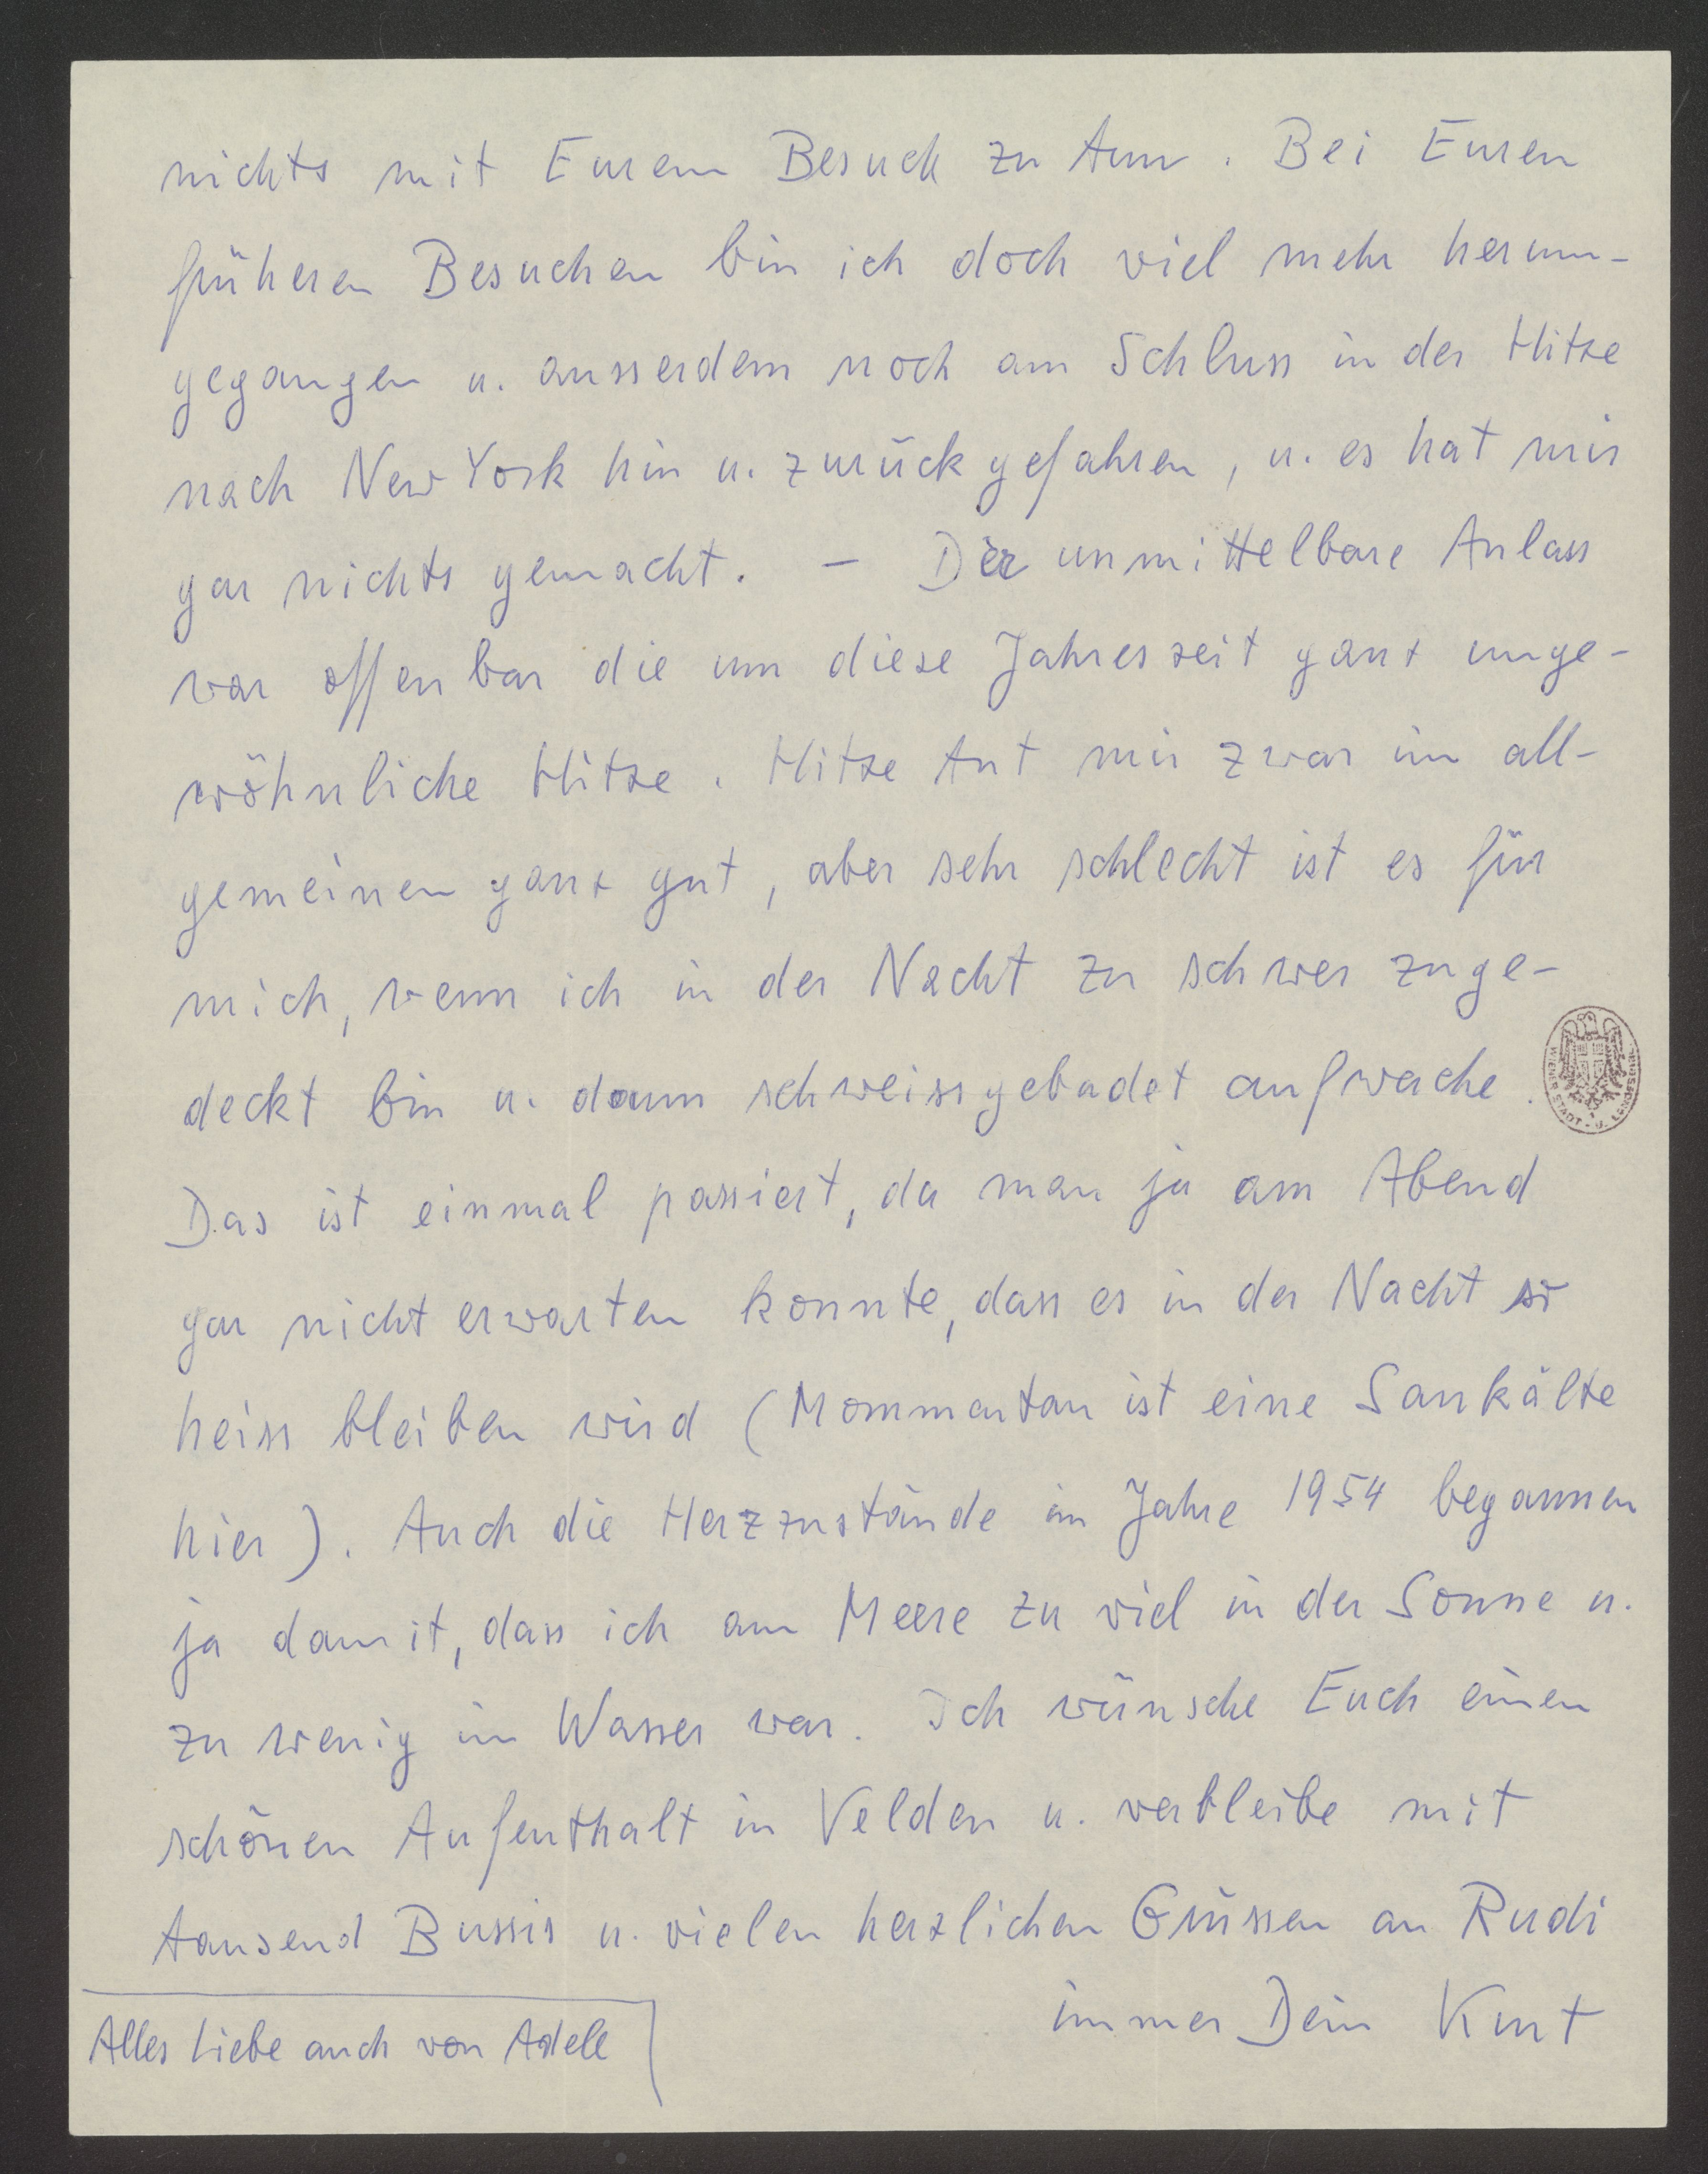 nichts mit Eurem Besuch zu tun. Bei Euren
früheren Besuchen bin ich doch viel mehr herum-
gegangen u. ausserdem noch am Schluss in der Hitze
nach New York hin u. zurückgefahren, u. es hat mir
gar nichts gemacht. – Der unmittelbare Anlass
war offenbar die um diese Jahreszeit ganz unge-
wöhnliche Hitze. Hitze tut mir zwar im all-
gemeinen ganz gut, aber sehr schlecht ist es für
mich, wenn ich in der Nacht zu schwer zuge-
deckt bin u. dann schweissgebadet aufwache.
Das ist einmal passiert, da man ja am Abend
gar nicht erwarten konnte, dass es in der Nacht so
heiss bleiben wird (Mommentan ist eine Saukälte
hier). Auch die Herzzustände im Jahre 1954 begannen
ja damit, dass ich am Meere zu viel in der Sonne u.
zu wenig im Wasser war. Ich wünsche Euch einen
schönen Aufenthalt in Velden u. verbleibe mit
tausend Bussis u. vielen herzlichen Grüssen an Rudi
immer Dein Kurt
Alles Liebe auch von Adele
WIENER STADT- U.